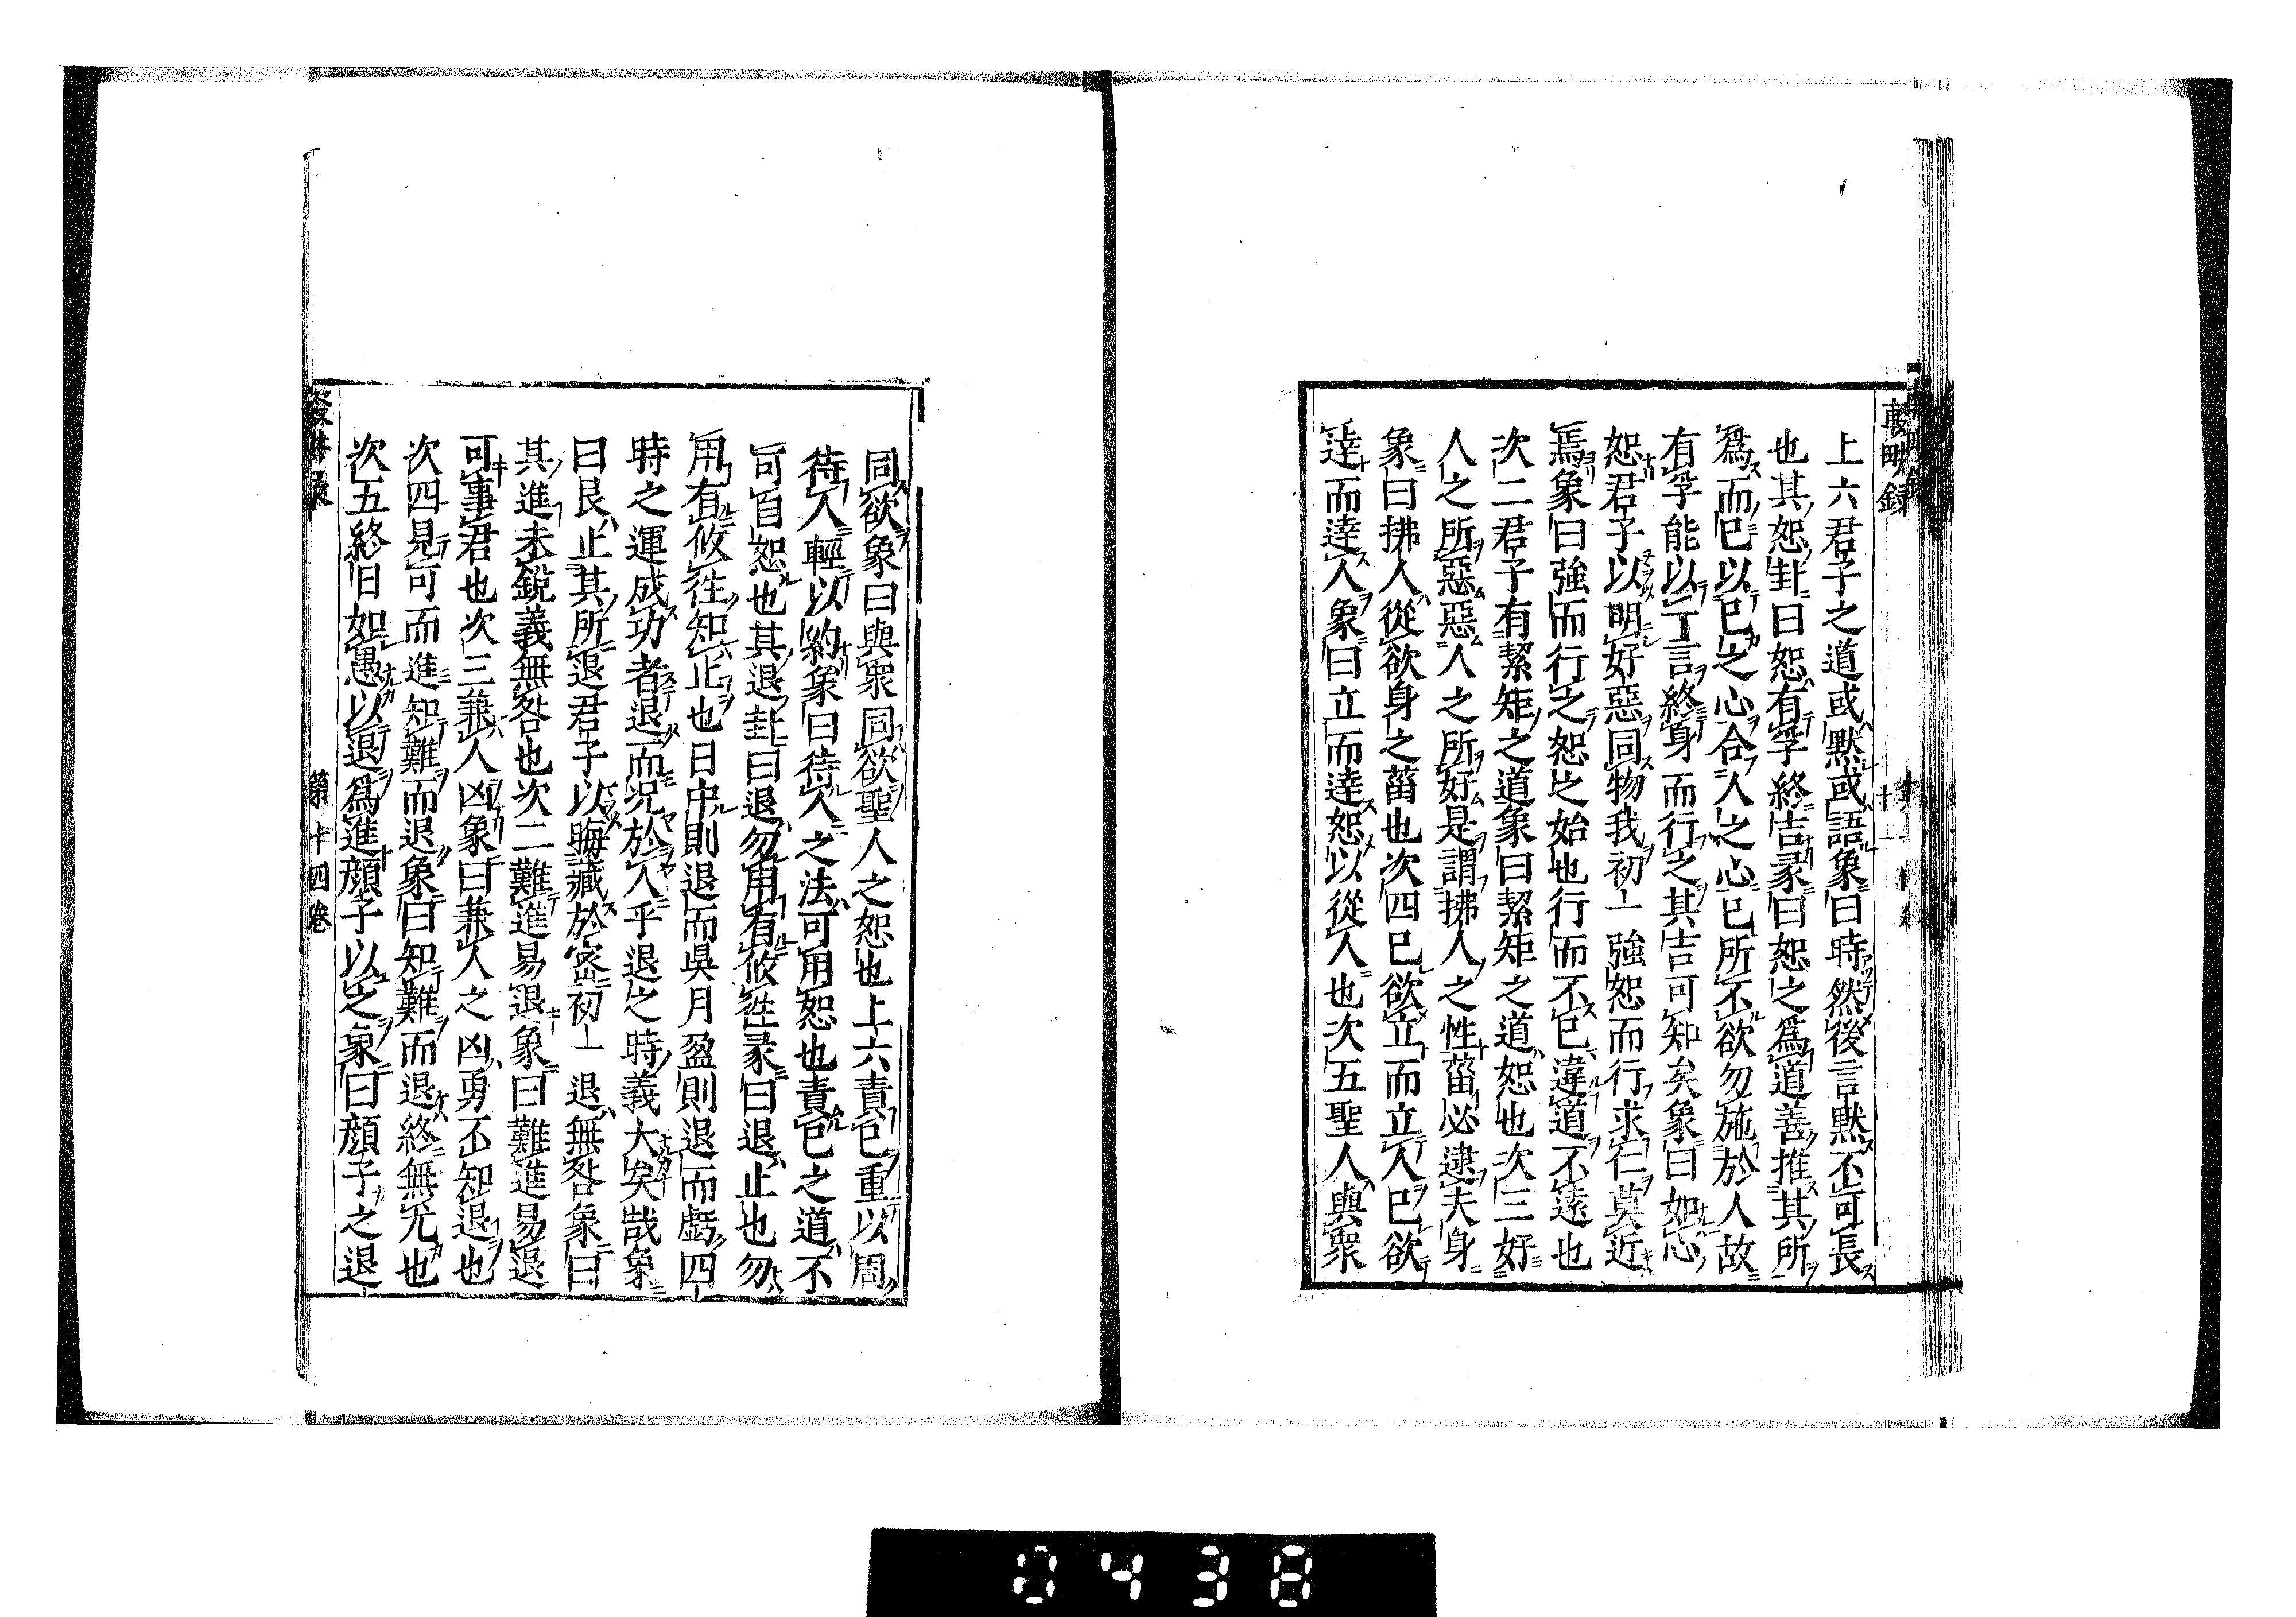 輟畊録
上六君子之道或默或語象曰時然後言默不可長
也其恕卦曰恕有孚終吉彖曰恕之爲道善推其所
爲而已以已之心合人之心已所不欲勿施於人故
有孚能以一言終身而行之其吉可知矣象曰如心
恕君子以明好惡同物我初一強恕而行求仁莫近
焉象曰強而行之恕之始也行而不已違道不遠也
次二君子有絜矩之道象曰絜矩之道恕也次三好
人之所惡惡人之所好是謂拂人之性菑必逮夫身
象曰拂人從欲身之菑也次四已欲立而立人已欲
達而達人象曰立而達恕以從人也次五聖人與衆
同欲象曰與衆同欲聖人之恕也上六責已重以周
待人輕以約象曰待人之法可用恕也責已之道不
可自恕也其退卦曰退勿用有攸徃彖曰退止也勿
用有攸徃知止也日中則退而昃月盈則退而虧四
時之運成功者退而况於人乎退之時義大矣哉象
曰艮止其所退君子以晦藏於密初一退無咎象曰
其進未銳義無咎也次二難進易退象曰難進易退
可事君也次三兼人凶象曰兼人之凶勇不知退也
次四見可而進知難而退象曰知難而退終無尤也
次五終日如愚以退爲進顔子以之象曰顔子之退
第十四卷
0438